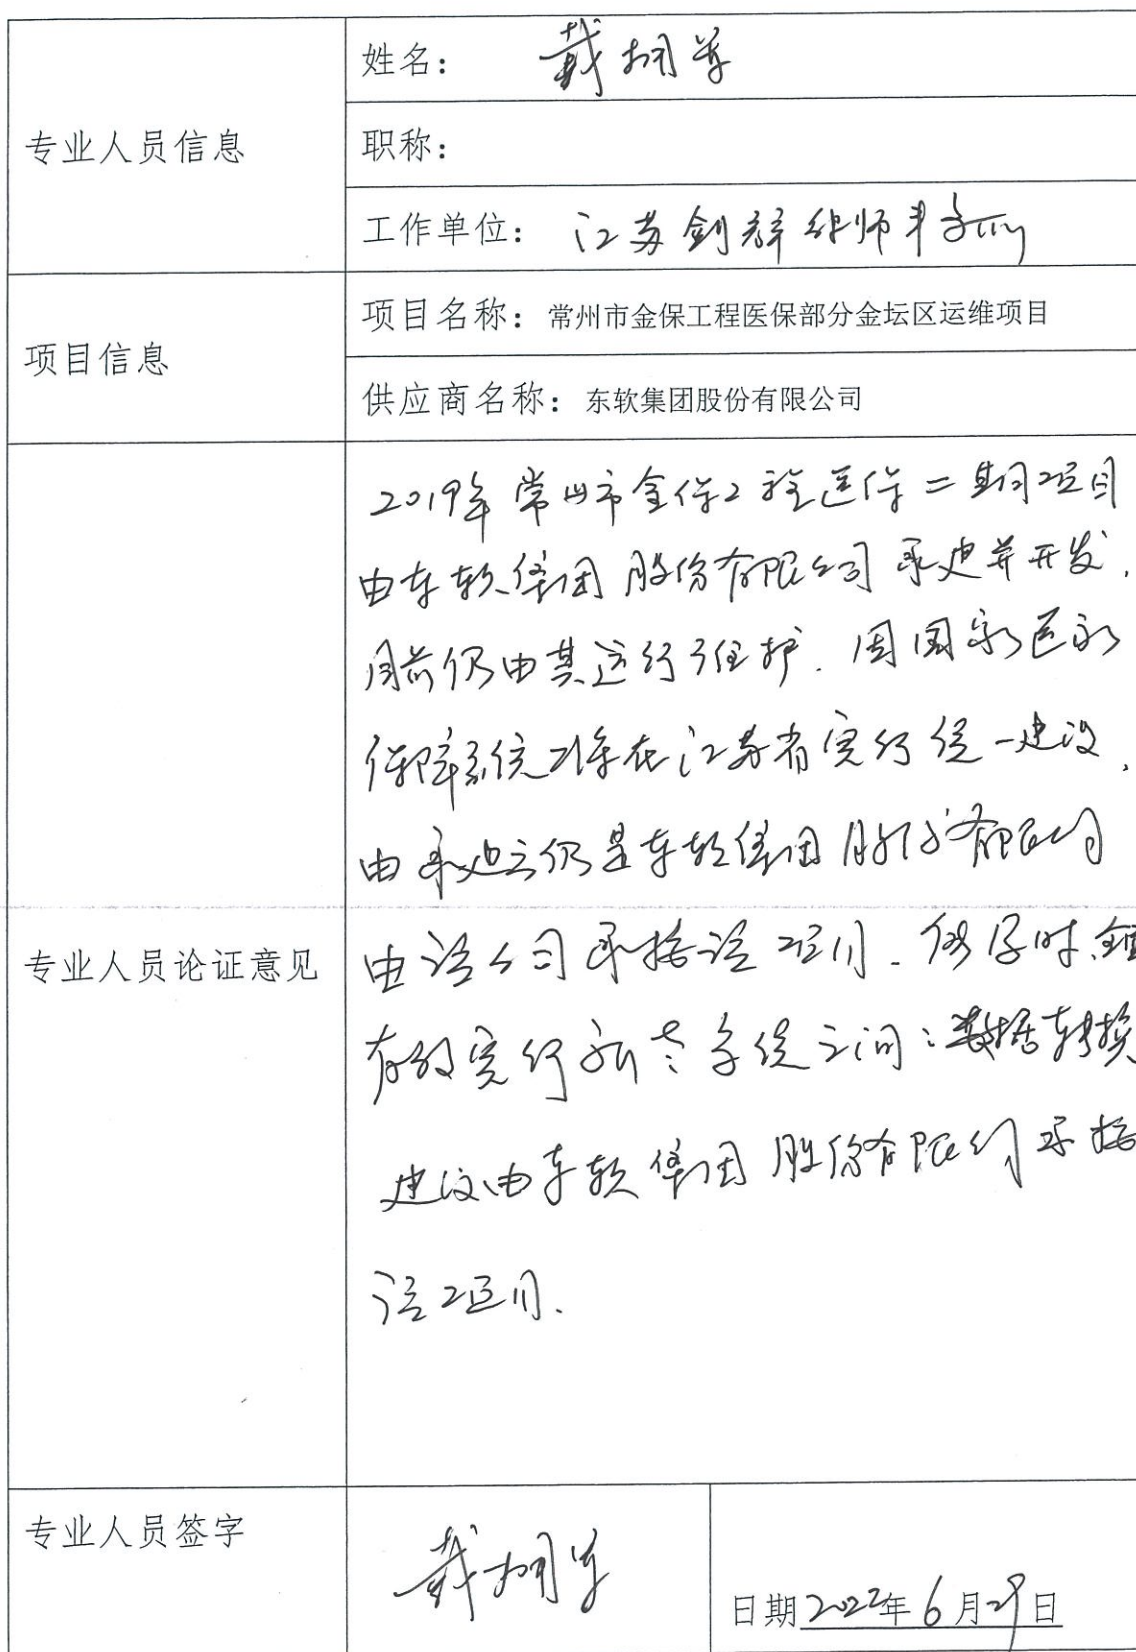 姓名：戴
专业人员信息
职称：
工作单位：江苏剑群律师事务所
项目信息
项目名称：常州市金保工程医保部分金坛区运维项目
供应商名称：东软集团股份有限公司
2019年常州市金保工程医保二期项目
由东软集团股份有限公司承建并开发，
目前仍由其运行维护．因国家医
保障系统将在江苏省实行统一建设，
由承建云仍是东软集团股份有限公司
专业人员论证意见
由该公司承接该项目．时
有效实行系统之间数据转换
建议由东软集团股份有限公司承接
该项目．
专业人员签字
戴
日期2022年6月29日